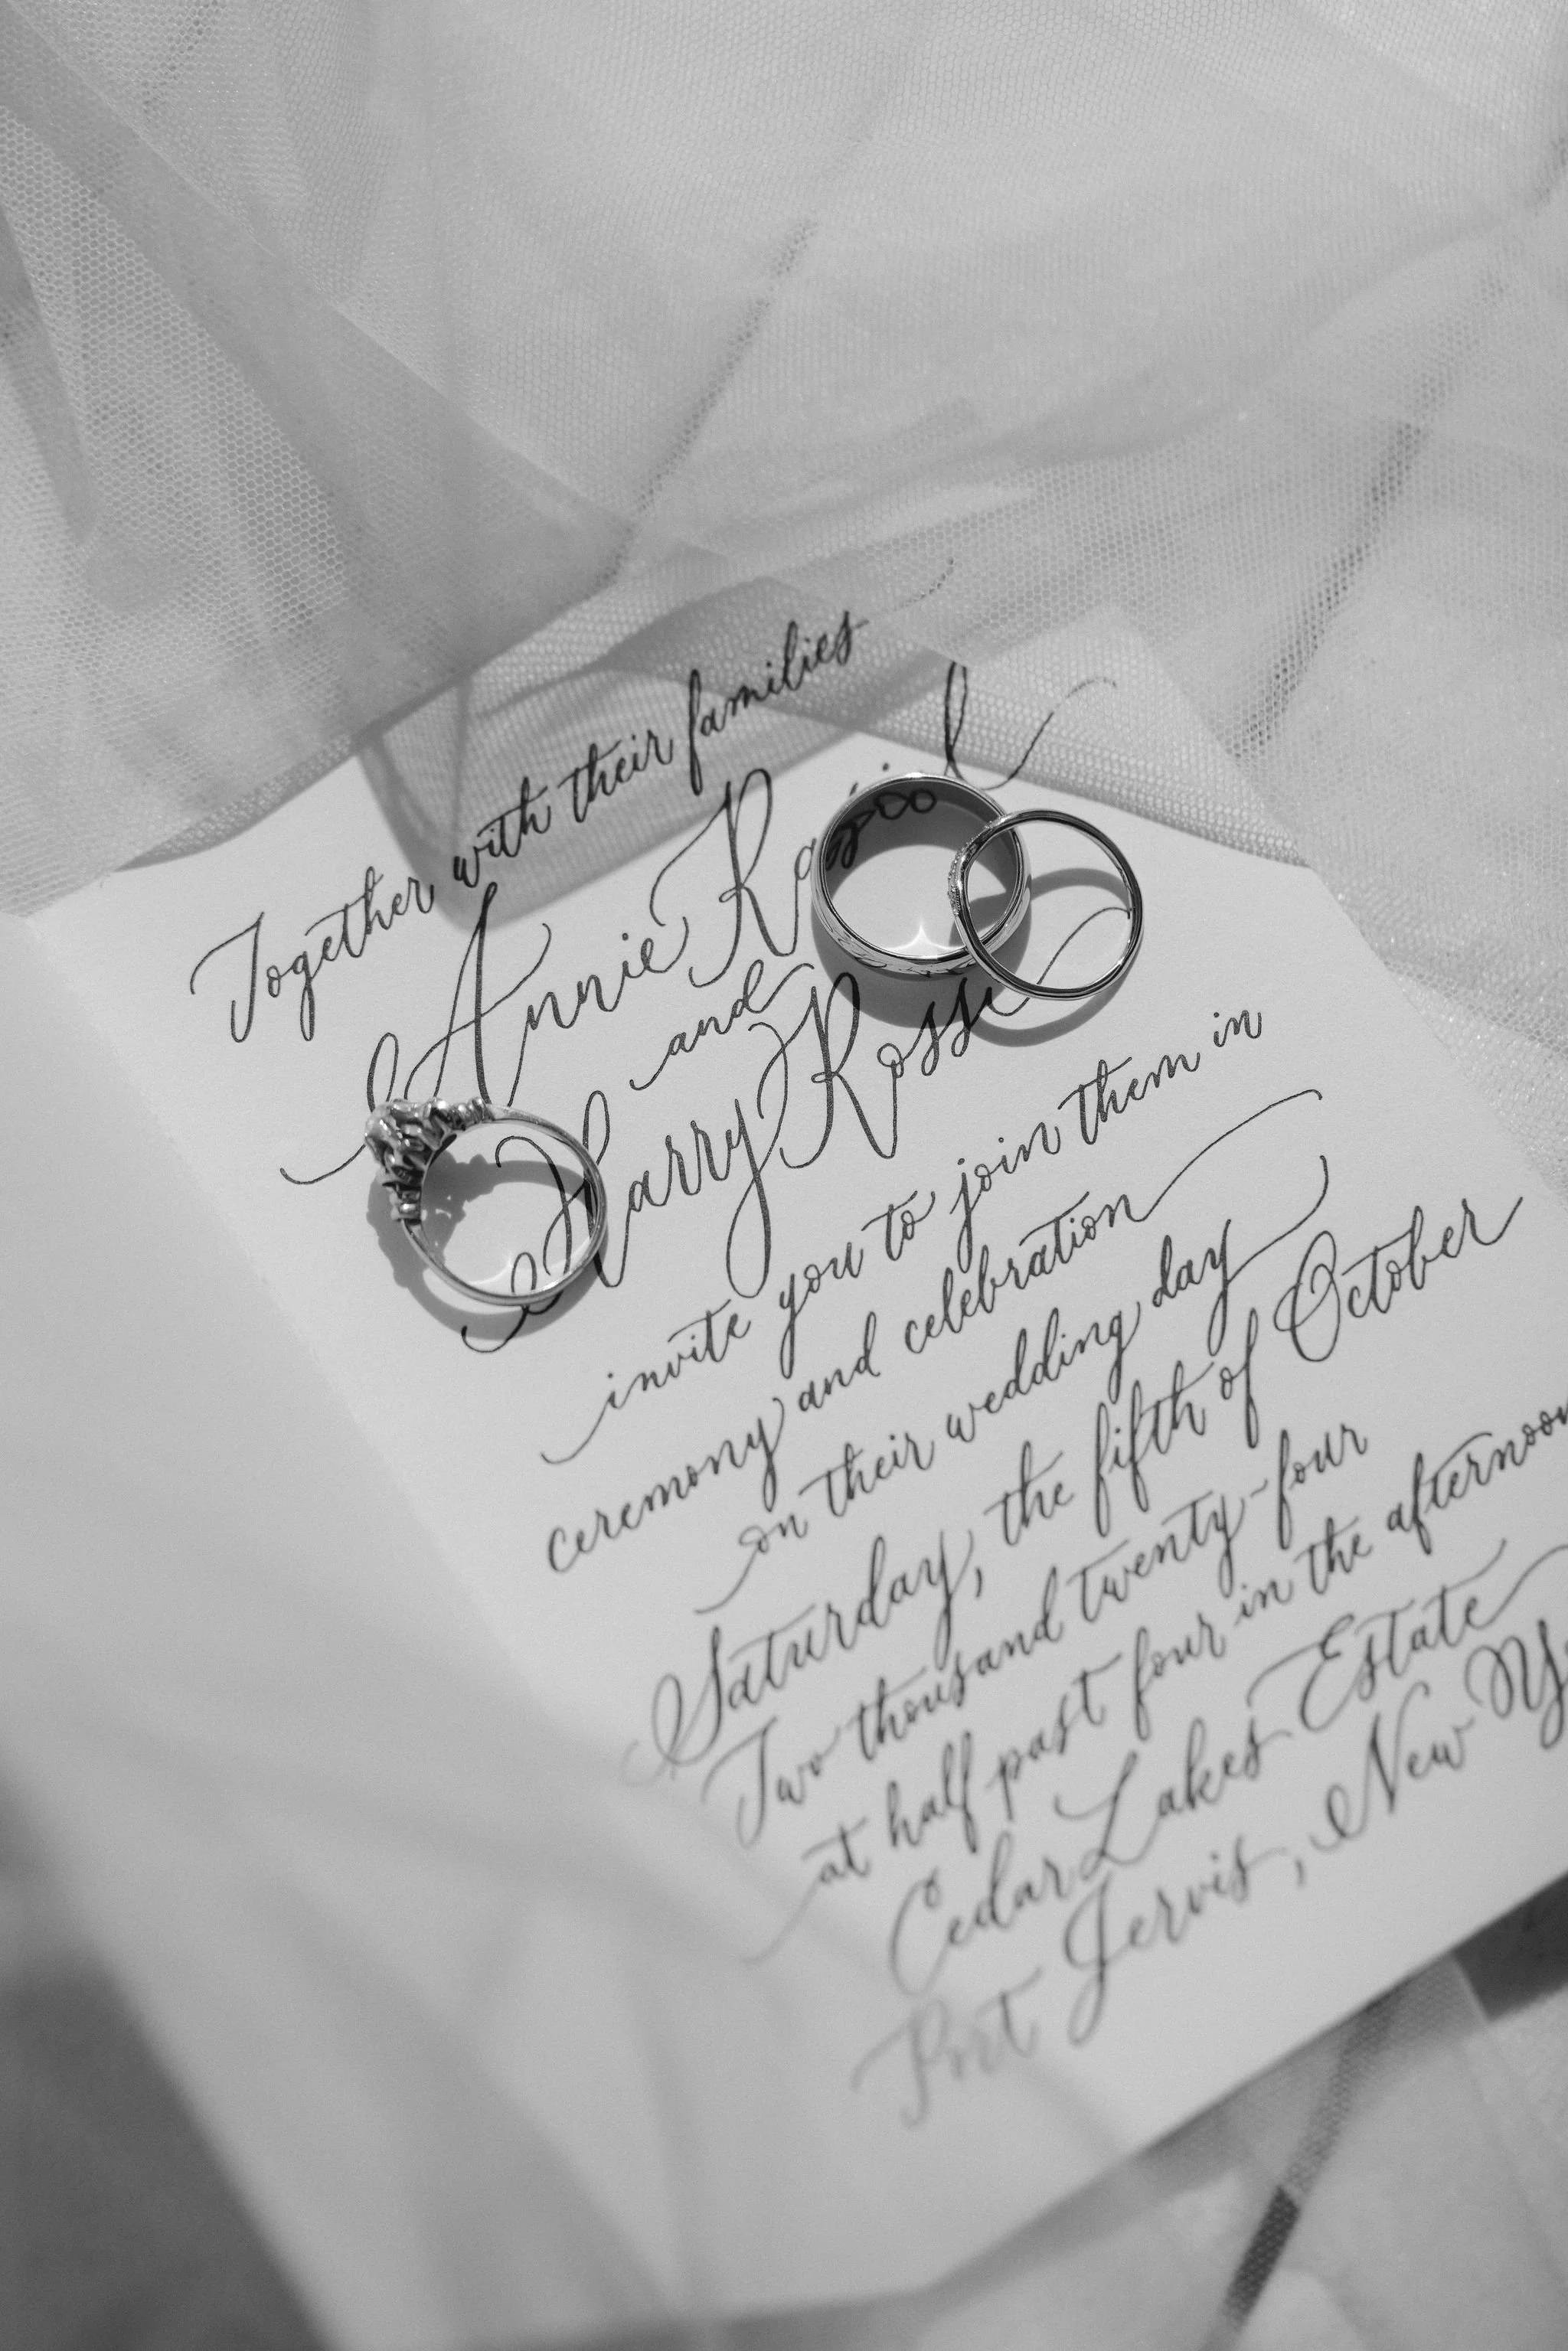 Together with their families
Annie
and
Harry Rosse
invite you to join them in
ceremony and celebration
on their wedding day
Saturday, the fifth of October
Two thousand twenty-four
at half past four in the afternoon
Cedar Lakes Estate
Port Jervis, New